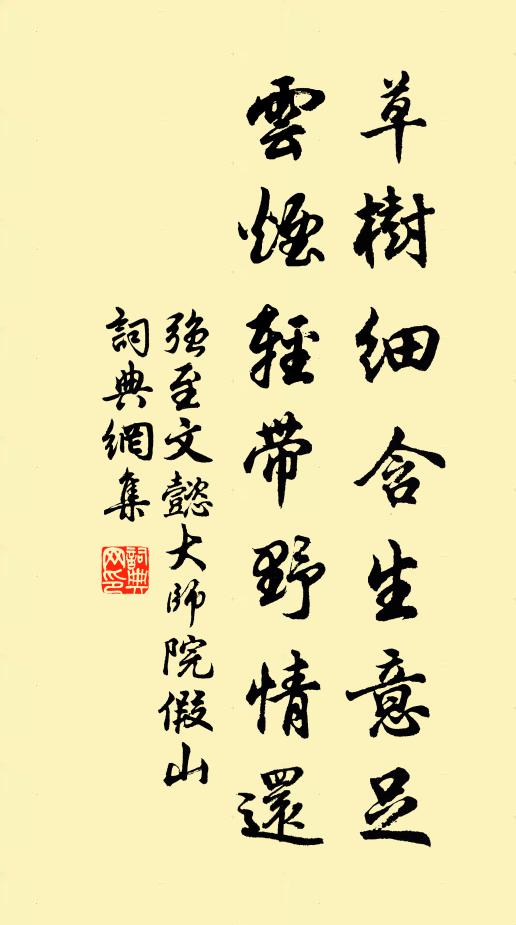 草樹細含生意足
雲煙輕帶野情還
強至文懿大師院假山
詞典網集
詞典網印